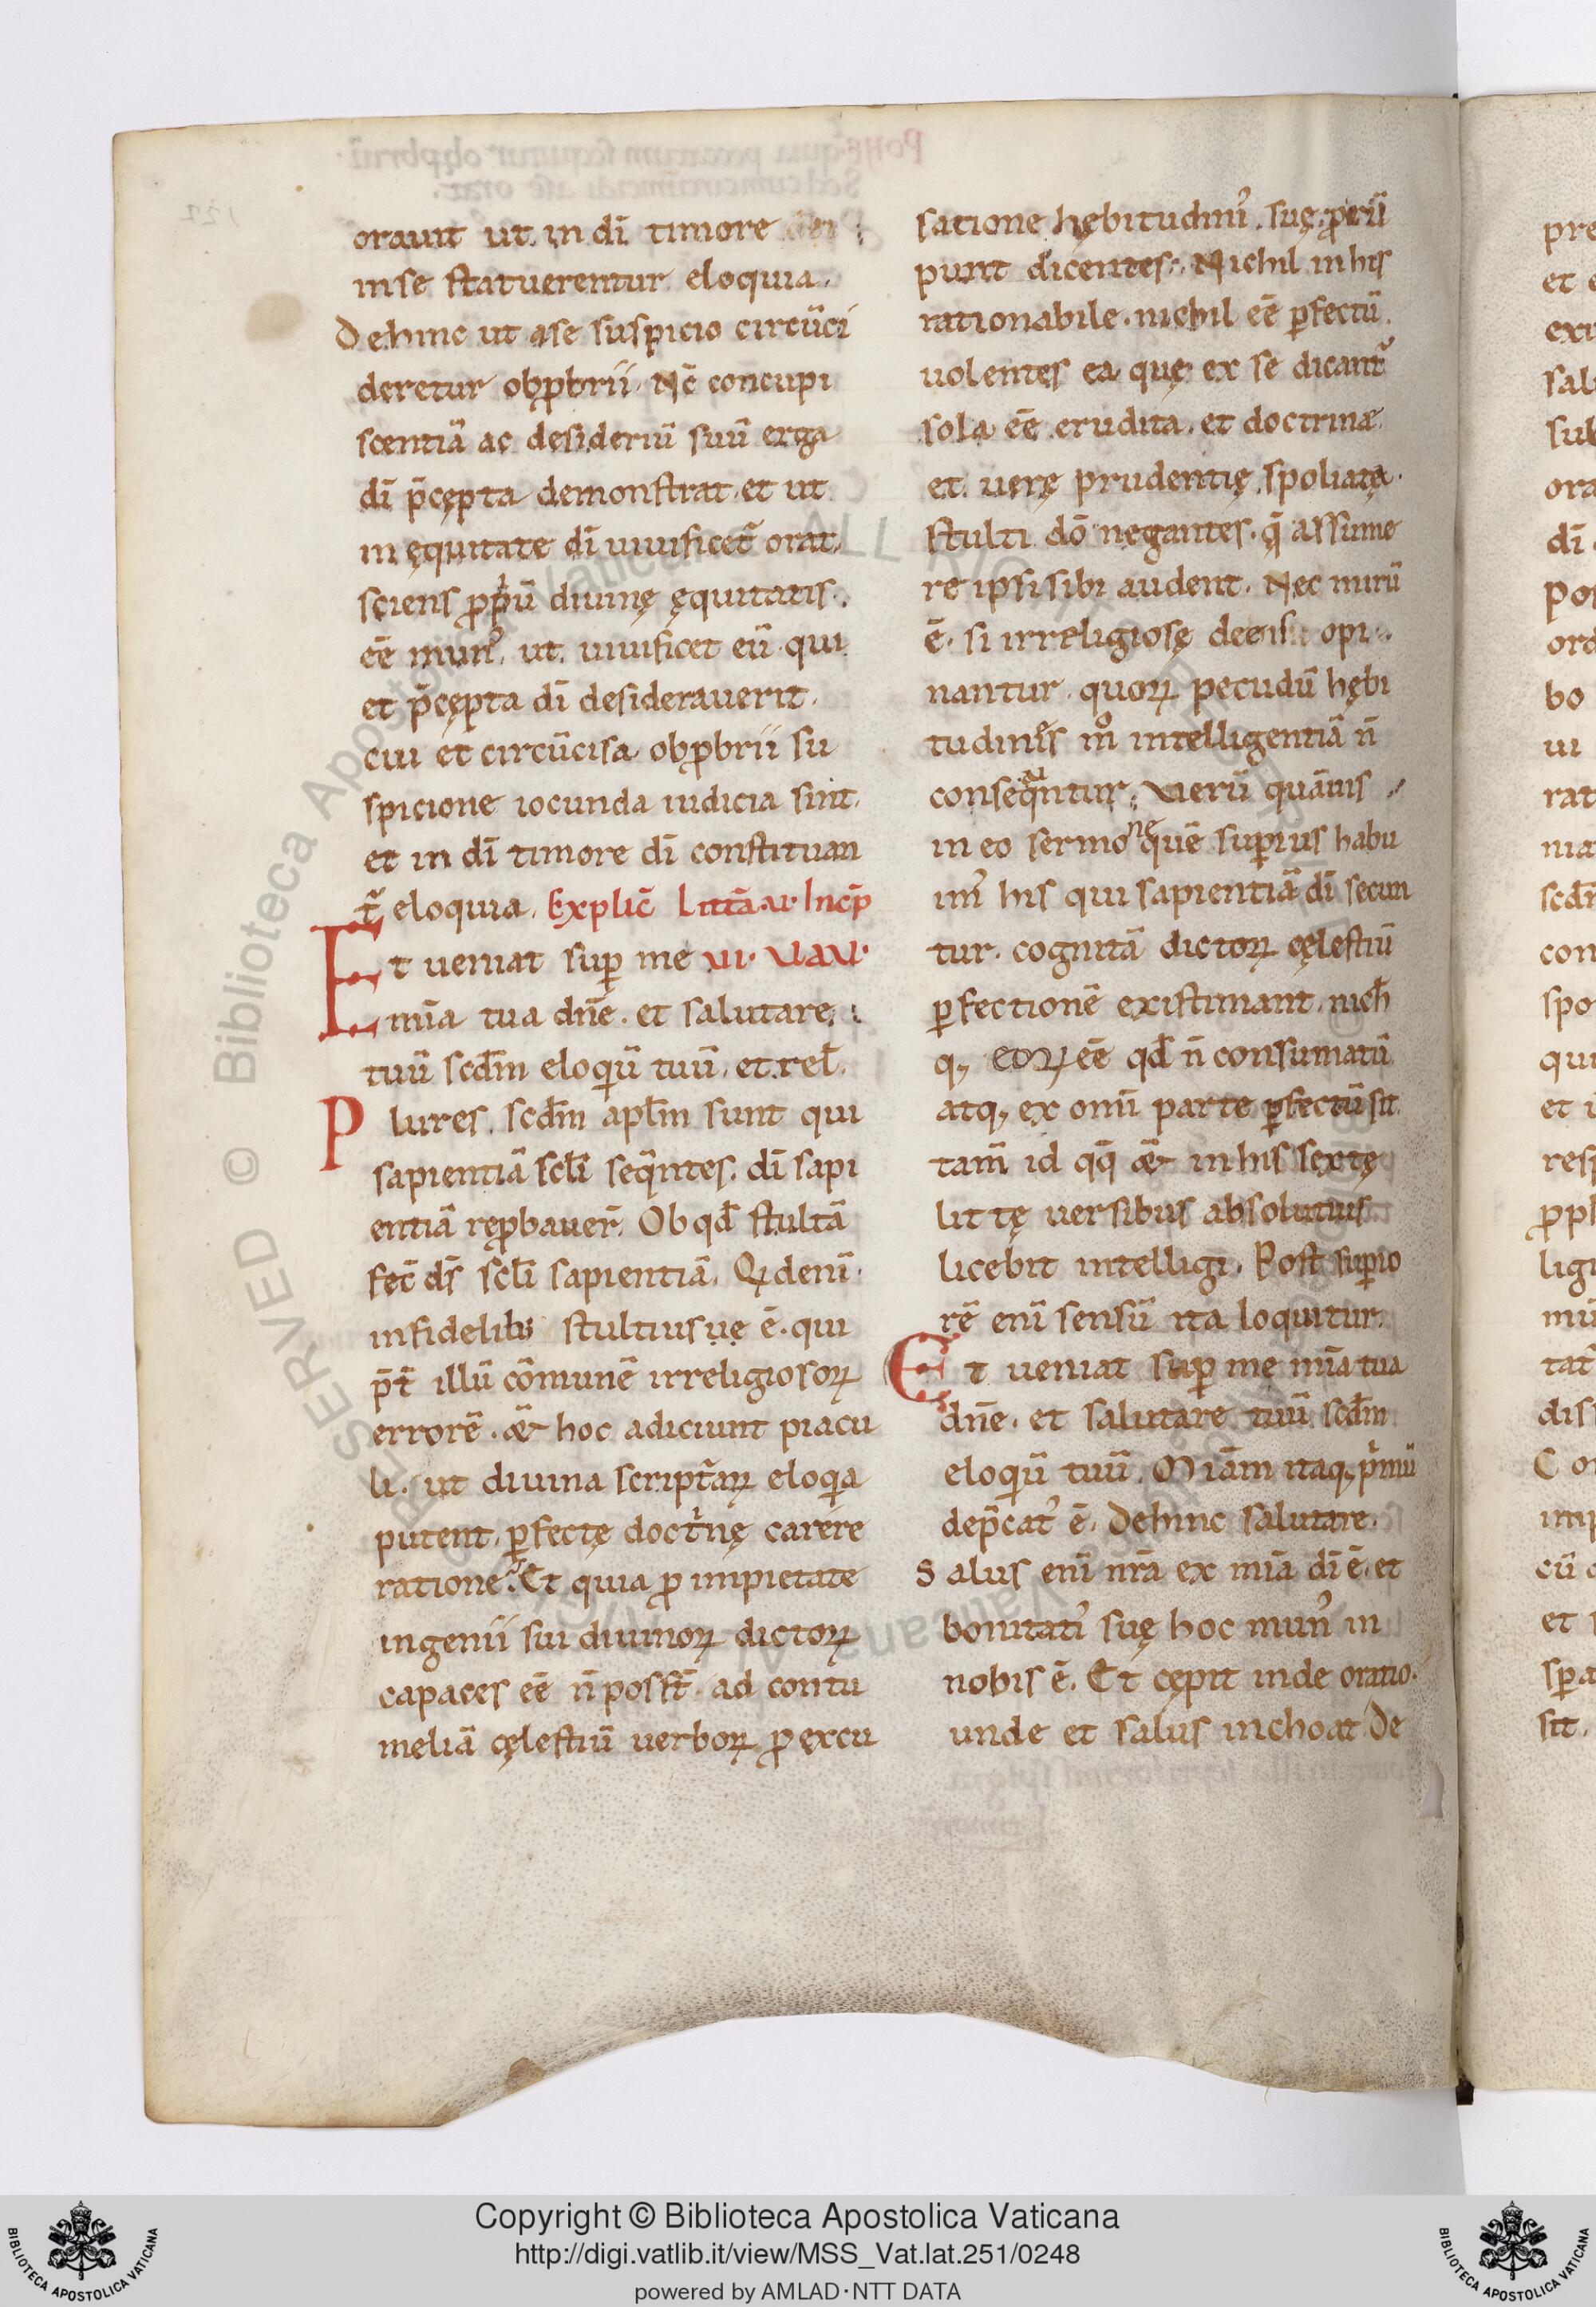 orauit ut in dī timore dei
in se statuerentur eloquia.
Dehinc ut a se suspicio circūci
deretur obꝓbrii. Nc̄ concupi
scentiā ac desideriū suū erga
dī p̄cępta demonstrat. et ut
in ęquitate dī uiuificet᷑ orat.
sciens ꝓpⁱū diuinę ęquitatis.
eē mun᾿. ut uiuificet eū qui
et p̄cępta dī desiderauerit.
cui et circūcisa obꝓbrii su
spicione iocunda iudicia sint.
et in dī timore dī constituan
t᷑ eloquia. Explic̄ Litt̄a .v. Incp̄
Et ueniat suꝑ me VI. VAV.
mīa tua dn̄e. et salutare
tuū scd̄m eloqⁱū tuū. et rel̄.
Plures scd̄m apl̄m sunt qui
sapientiā scl̄i seq̄ntes. dī sapi
entiā reꝓbauer̄. Ob qd̄ stultā
fec̄ ds̄ scl̄i sapientiā. Qⁱd enī
infidelibꝰ stultius uę ē. qui
p̄t̄ illū cōmunē irreligiosoꝝ
errorē. & hoc adiciunt piacu
li. ut diuina script᷑aꝝ eloqⁱa
putent ꝑfectę doctⁱnę carere
ratione. Et quia ꝓ impietate
ingenii sui diuinoꝝ dictoꝝ
capaces eē n̄ posst̄. ad contu
meliā cęlestiū uerboꝝ ꝓ excu
satione hębitudini᾿ suę. ꝓrū
punt dicentes. Nichil in his
rationabile. nichil eē ꝑfectū.
uolentes ea quę ex se dicant᷑
sola eē erudita. et doctrinæ
et uerę prudentię spoliatę.
stulti dō negantes. q̄ assume
re ipsi sibi audent. Nec mirū
ē. si irreligiosę de opi
nantur. quoꝝ pecudū hębi
tudinēs m̊ intelligentiā n̄
conseqᵃntur. Uerū quāuis
in eo sermone quē suꝑius habu
im᾿ his qui sapientiā dī secun
tur. cognitā dictoꝝ cęlestiū
ꝑfectionē existimant. nich̄
qꝫ eoꝝ eē qd̄ n̄ consumatū
atqꝫ ex omī parte ꝑfectū sit.
tam̄ id qq̄ & in his sextę
littę uersibus absolutius
licebit intelligi. Post suꝑio
rē enī sensū ita loquitur.
Et ueniat suꝑ me mīa tua
dn̄e. et salutare tuū scd̄m
eloqⁱū tuū. Miām itaqꝫ pⁱmū
dep̄cat᾿ ē. Dehinc salutare.
Salus enī nr̄a ex mīa dī ē. et
bonitati᾿ suę hoc mun᾿ in
nobis ē. Et cępit inde oratio.
unde et salus inchoat. De
Copyright © Biblioteca Apostolica Vaticana
http://digi.vatlib.it/view/MSS_Vat.lat.251/0248
powered by AMLAD · NTT DATA